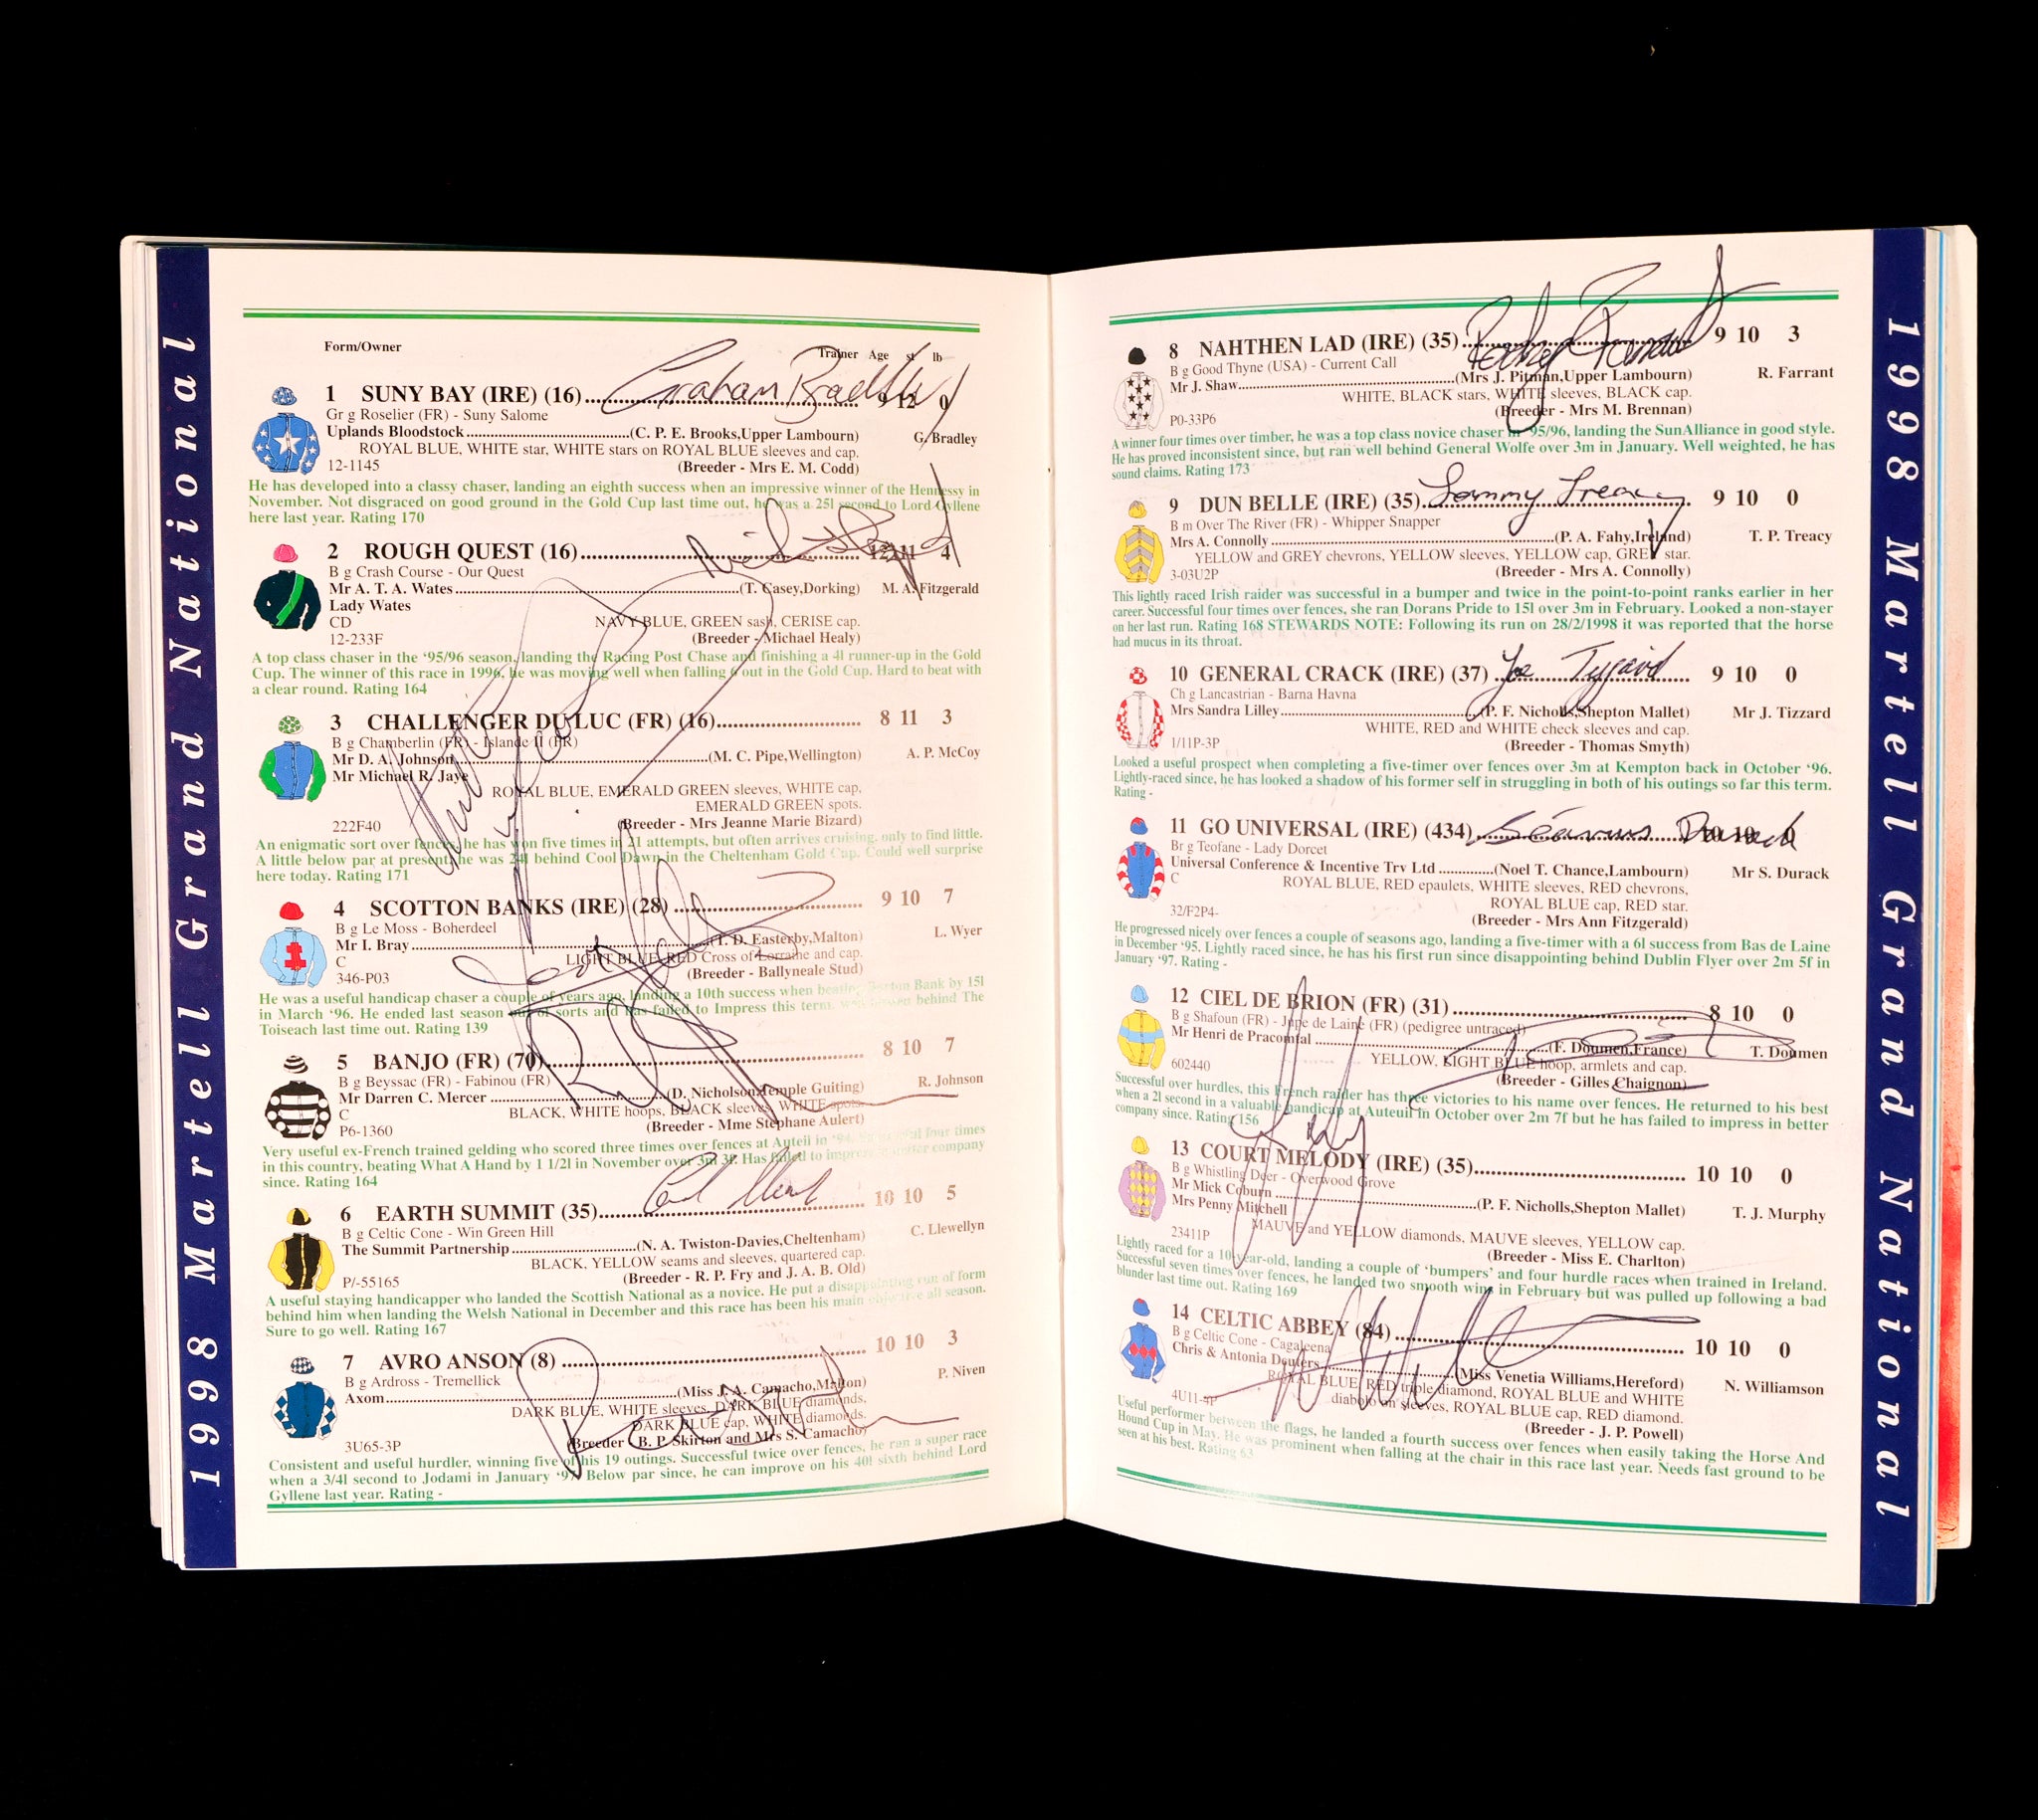 1998 Martell Grand National
Form/Owner Trainer Age st lb
1 SUNY BAY (IRE) (16) Graham Bradley 9 12 0
Gr g Roselier (FR) - Suny Salome
Uplands Bloodstock (C. P. E. Brooks,Upper Lambourn) G. Bradley
ROYAL BLUE, WHITE star, WHITE stars on ROYAL BLUE sleeves and cap.
12-1145 (Breeder - Mrs E. M. Codd)
He has developed into a classy chaser, landing an eighth success when an impressive winner of the Hennessy in
November. Not disgraced on good ground in the Gold Cup last time out, he was a 25l second to Lord Gyllene
here last year. Rating 170
2 ROUGH QUEST (16) 12 11 4
B g Crash Course - Our Quest
Mr A. T. A. Wates (T. Casey,Dorking) M. A. Fitzgerald
Lady Wates
CD NAVY BLUE, GREEN sash, CERISE cap.
12-233F (Breeder - Michael Healy)
A top class chaser in the ‘95/96 season, landing the Racing Post Chase and finishing a 4l runner-up in the Gold
Cup. The winner of this race in 1996, he was moving well when falling 6 out in the Gold Cup. Hard to beat with
a clear round. Rating 164
3 CHALLENGER DU LUC (FR) (16) 8 11 3
B g Chamberlin (FR) - Islande II (FR)
Mr D. A. Johnson (M. C. Pipe,Wellington) A. P. McCoy
Mr Michael R. Jaye
ROYAL BLUE, EMERALD GREEN sleeves, WHITE cap,
EMERALD GREEN spots.
222F40 (Breeder - Mrs Jeanne Marie Bizard)
An enigmatic sort over fences, he has won five times in 21 attempts, but often arrives cruising, only to find little.
A little below par at present, he was 24l behind Cool Dawn in the Cheltenham Gold Cup. Could well surprise
here today. Rating 171
4 SCOTTON BANKS (IRE) (28) 9 10 7
B g Le Moss - Boherdeel
Mr I. Bray (T. D. Easterby,Malton) L. Wyer
C LIGHT BLUE, RED Cross of Lorraine and cap.
346-P03 (Breeder - Ballyneale Stud)
He was a useful handicap chaser a couple of years ago, landing a 10th success when beating Barton Bank by 15l
in March ‘96. He ended last season out of sorts and has failed to Impress this term, was behind The
Toiseach last time out. Rating 139
5 BANJO (FR) (70) 8 10 7
B g Beyssac (FR) - Fabinou (FR)
Mr Darren C. Mercer (D. Nicholson,Temple Guiting) R. Johnson
C BLACK, WHITE hoops, BLACK sleeves, WHITE spots.
P6-1360 (Breeder - Mme Stephane Aulert)
Very useful ex-French trained gelding who scored three times over fences at Auteil in ‘94. Successful four times
in this country, beating What A Hand by 1 1/2l in November over 3m 3f. Has failed to impress in better company
since. Rating 164
6 EARTH SUMMIT (35) Carl 10 10 5
B g Celtic Cone - Win Green Hill
The Summit Partnership (N. A. Twiston-Davies,Cheltenham) C. Llewellyn
BLACK, YELLOW seams and sleeves, quartered cap.
P/-55165 (Breeder - R. P. Fry and J. A. B. Old)
A useful staying handicapper who landed the Scottish National as a novice. He put a disappointing run of form
behind him when landing the Welsh National in December and this race has been his main objective all season.
Sure to go well. Rating 167
7 AVRO ANSON (8) 10 10 3
B g Ardross - Tremellick
Axom (Miss J. A. Camacho,Malton) P. Niven
DARK BLUE, WHITE sleeves, DARK BLUE diamonds,
DARK BLUE cap, WHITE diamonds.
3U65-3P (Breeder - B. P. Skirton and Mrs S. Camacho)
Consistent and useful hurdler, winning five of his 19 outings. Successful twice over fences, he ran a super race
when a 3/4l second to Jodami in January ‘97. Below par since, he can improve on his 40l sixth behind Lord
Gyllene last year. Rating -
8 NAHTHEN LAD (IRE) (35) Rodney Farrant 9 10 3
B g Good Thyne (USA) - Current Call
Mr J. Shaw (Mrs J. Pitman,Upper Lambourn) R. Farrant
WHITE, BLACK stars, WHITE sleeves, BLACK cap.
P0-33P6 (Breeder - Mrs M. Brennan)
A winner four times over timber, he was a top class novice chaser in ‘95/96, landing the SunAlliance in good style.
He has proved inconsistent since, but ran well behind General Wolfe over 3m in January. Well weighted, he has
sound claims. Rating 173
9 DUN BELLE (IRE) (35) Tommy Treacy 9 10 0
B m Over The River (FR) - Whipper Snapper
Mrs A. Connolly (P. A. Fahy,Ireland) T. P. Treacy
YELLOW and GREY chevrons, YELLOW sleeves, YELLOW cap, GREY star.
3-03U2P (Breeder - Mrs A. Connolly)
This lightly raced Irish raider was successful in a bumper and twice in the point-to-point ranks earlier in her
career. Successful four times over fences, she ran Dorans Pride to 15l over 3m in February. Looked a non-stayer
on her last run. Rating 168 STEWARDS NOTE: Following its run on 28/2/1998 it was reported that the horse
had mucus in its throat.
10 GENERAL CRACK (IRE) (37) Joe Tizzard 9 10 0
Ch g Lancastrian - Barna Havna
Mrs Sandra Lilley (P. F. Nicholls,Shepton Mallet) Mr J. Tizzard
WHITE, RED and WHITE check sleeves and cap.
1/11P-3P (Breeder - Thomas Smyth)
Looked a useful prospect when completing a five-timer over fences over 3m at Kempton back in October ‘96.
Lightly-raced since, he has looked a shadow of his former self in struggling in both of his outings so far this term.
Rating -
11 GO UNIVERSAL (IRE) (434) Séamus Durack 10 10 0
Br g Teofane - Lady Dorcet
Universal Conference & Incentive Trv Ltd (Noel T. Chance,Lambourn) Mr S. Durack
C ROYAL BLUE, RED epaulets, WHITE sleeves, RED chevrons,
ROYAL BLUE cap, RED star.
32/F2P4- (Breeder - Mrs Ann Fitzgerald)
He progressed nicely over fences a couple of seasons ago, landing a five-timer with a 6l success from Bas de Laine
in December ‘95. Lightly raced since, he has his first run since disappointing behind Dublin Flyer over 2m 5f in
January ‘97. Rating -
12 CIEL DE BRION (FR) (31) 8 10 0
B g Shafoun (FR) - Jupe de Laine (FR) (pedigree untraced)
Mr Henri de Pracomtal (F. Doumen,France) T. Doumen
YELLOW, LIGHT BLUE hoop, armlets and cap.
602440 (Breeder - Gilles Chaignon)
Successful over hurdles, this French raider has three victories to his name over fences. He returned to his best
when a 2l second in a valuable handicap at Auteuil in October over 2m 7f but he has failed to impress in better
company since. Rating 156
13 COURT MELODY (IRE) (35) 10 10 0
B g Whistling Deer - Overwood Grove
Mr Mick Coburn (P. F. Nicholls,Shepton Mallet) T. J. Murphy
Mrs Penny Mitchell
MAUVE and YELLOW diamonds, MAUVE sleeves, YELLOW cap.
23411P (Breeder - Miss E. Charlton)
Lightly raced for a 10-year-old, landing a couple of ‘bumpers’ and four hurdle races when trained in Ireland.
Successful seven times over fences, he landed two smooth wins in February but was pulled up following a bad
blunder last time out. Rating 169
14 CELTIC ABBEY (84) 10 10 0
B g Celtic Cone - Cagaleena
Chris & Antonia Deuters (Miss Venetia Williams,Hereford) N. Williamson
ROYAL BLUE, RED triple diamond, ROYAL BLUE and WHITE
4U11-4P diabolo on sleeves, ROYAL BLUE cap, RED diamond.
(Breeder - J. P. Powell)
Useful performer between the flags, he landed a fourth success over fences when easily taking the Horse And
Hound Cup in May. He was prominent when falling at the chair in this race last year. Needs fast ground to be
seen at his best. Rating 63
1998 Martell Grand National